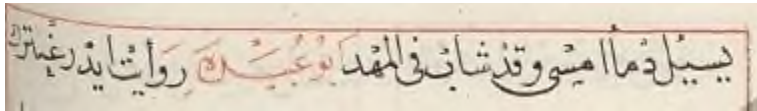 يسيل دماً امسى وقد شاب فى المهد ابو عبيدة روايت ايدر